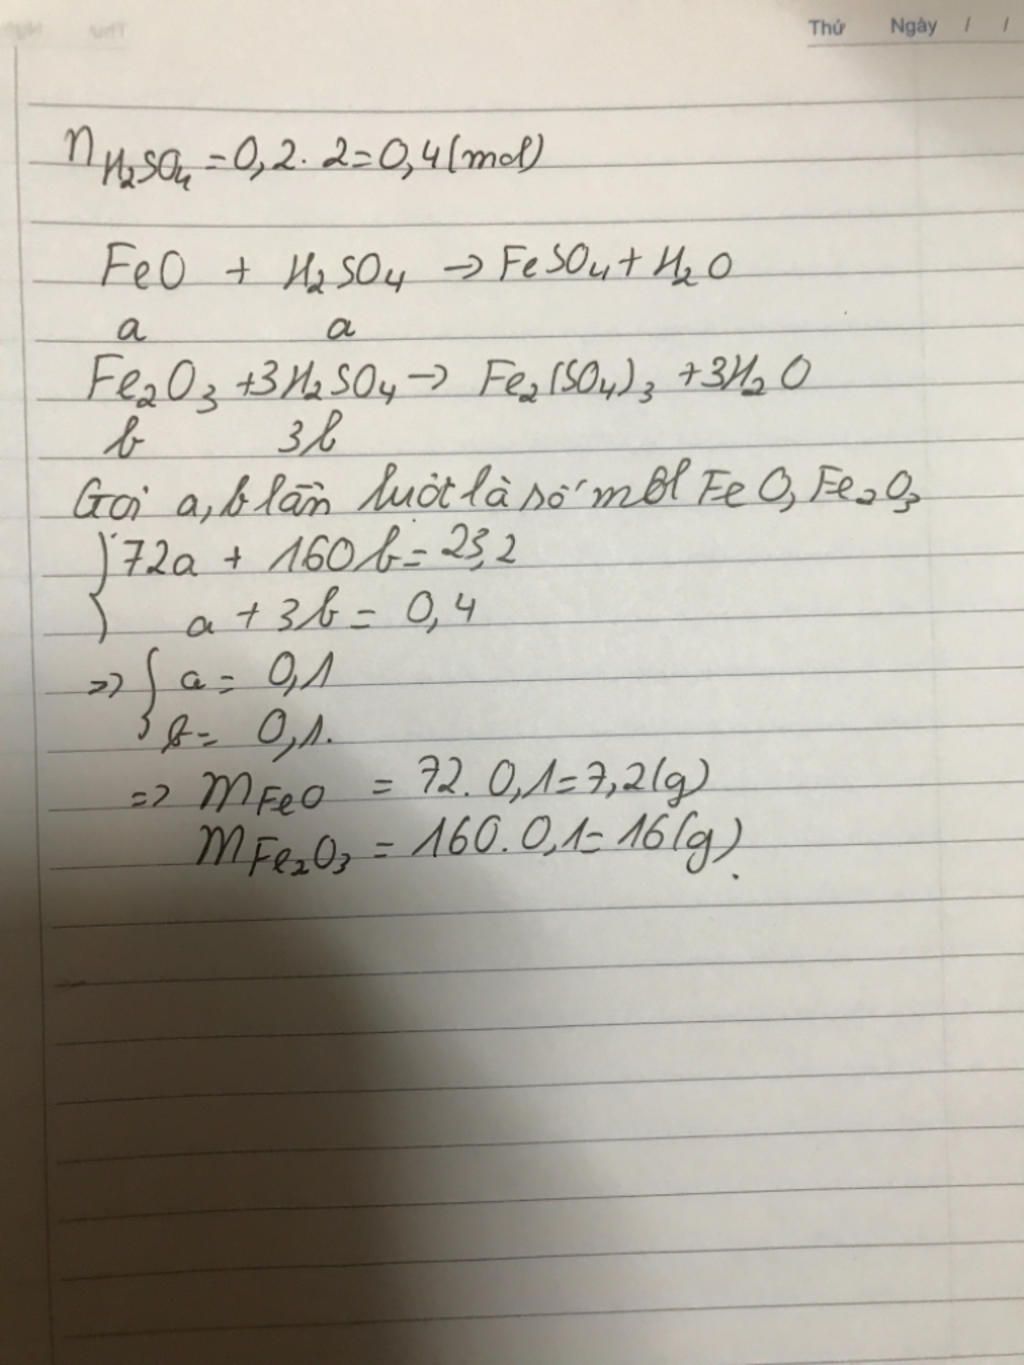 Thứ Ngày / /
n H₂SO₄ = 0,2 . 2 = 0,4 (mol)
FeO + H₂SO₄ → FeSO₄ + H₂O
a a
Fe₂O₃ + 3H₂SO₄ → Fe₂(SO₄)₃ + 3H₂O
b 3b
Gọi a, b lần lượt là số mol FeO, Fe₂O₃
{ 72a + 160b = 23,2
a + 3b = 0,4
=> { a = 0,1
b = 0,1.
=> m FeO = 72 . 0,1 = 7,2 (g)
m Fe₂O₃ = 160 . 0,1 = 16 (g).